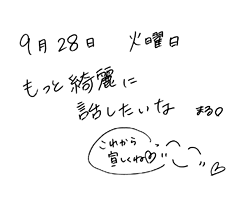 9月28日 火曜日
もっと綺麗に
話したいな まる。
これから
宜しくね♡